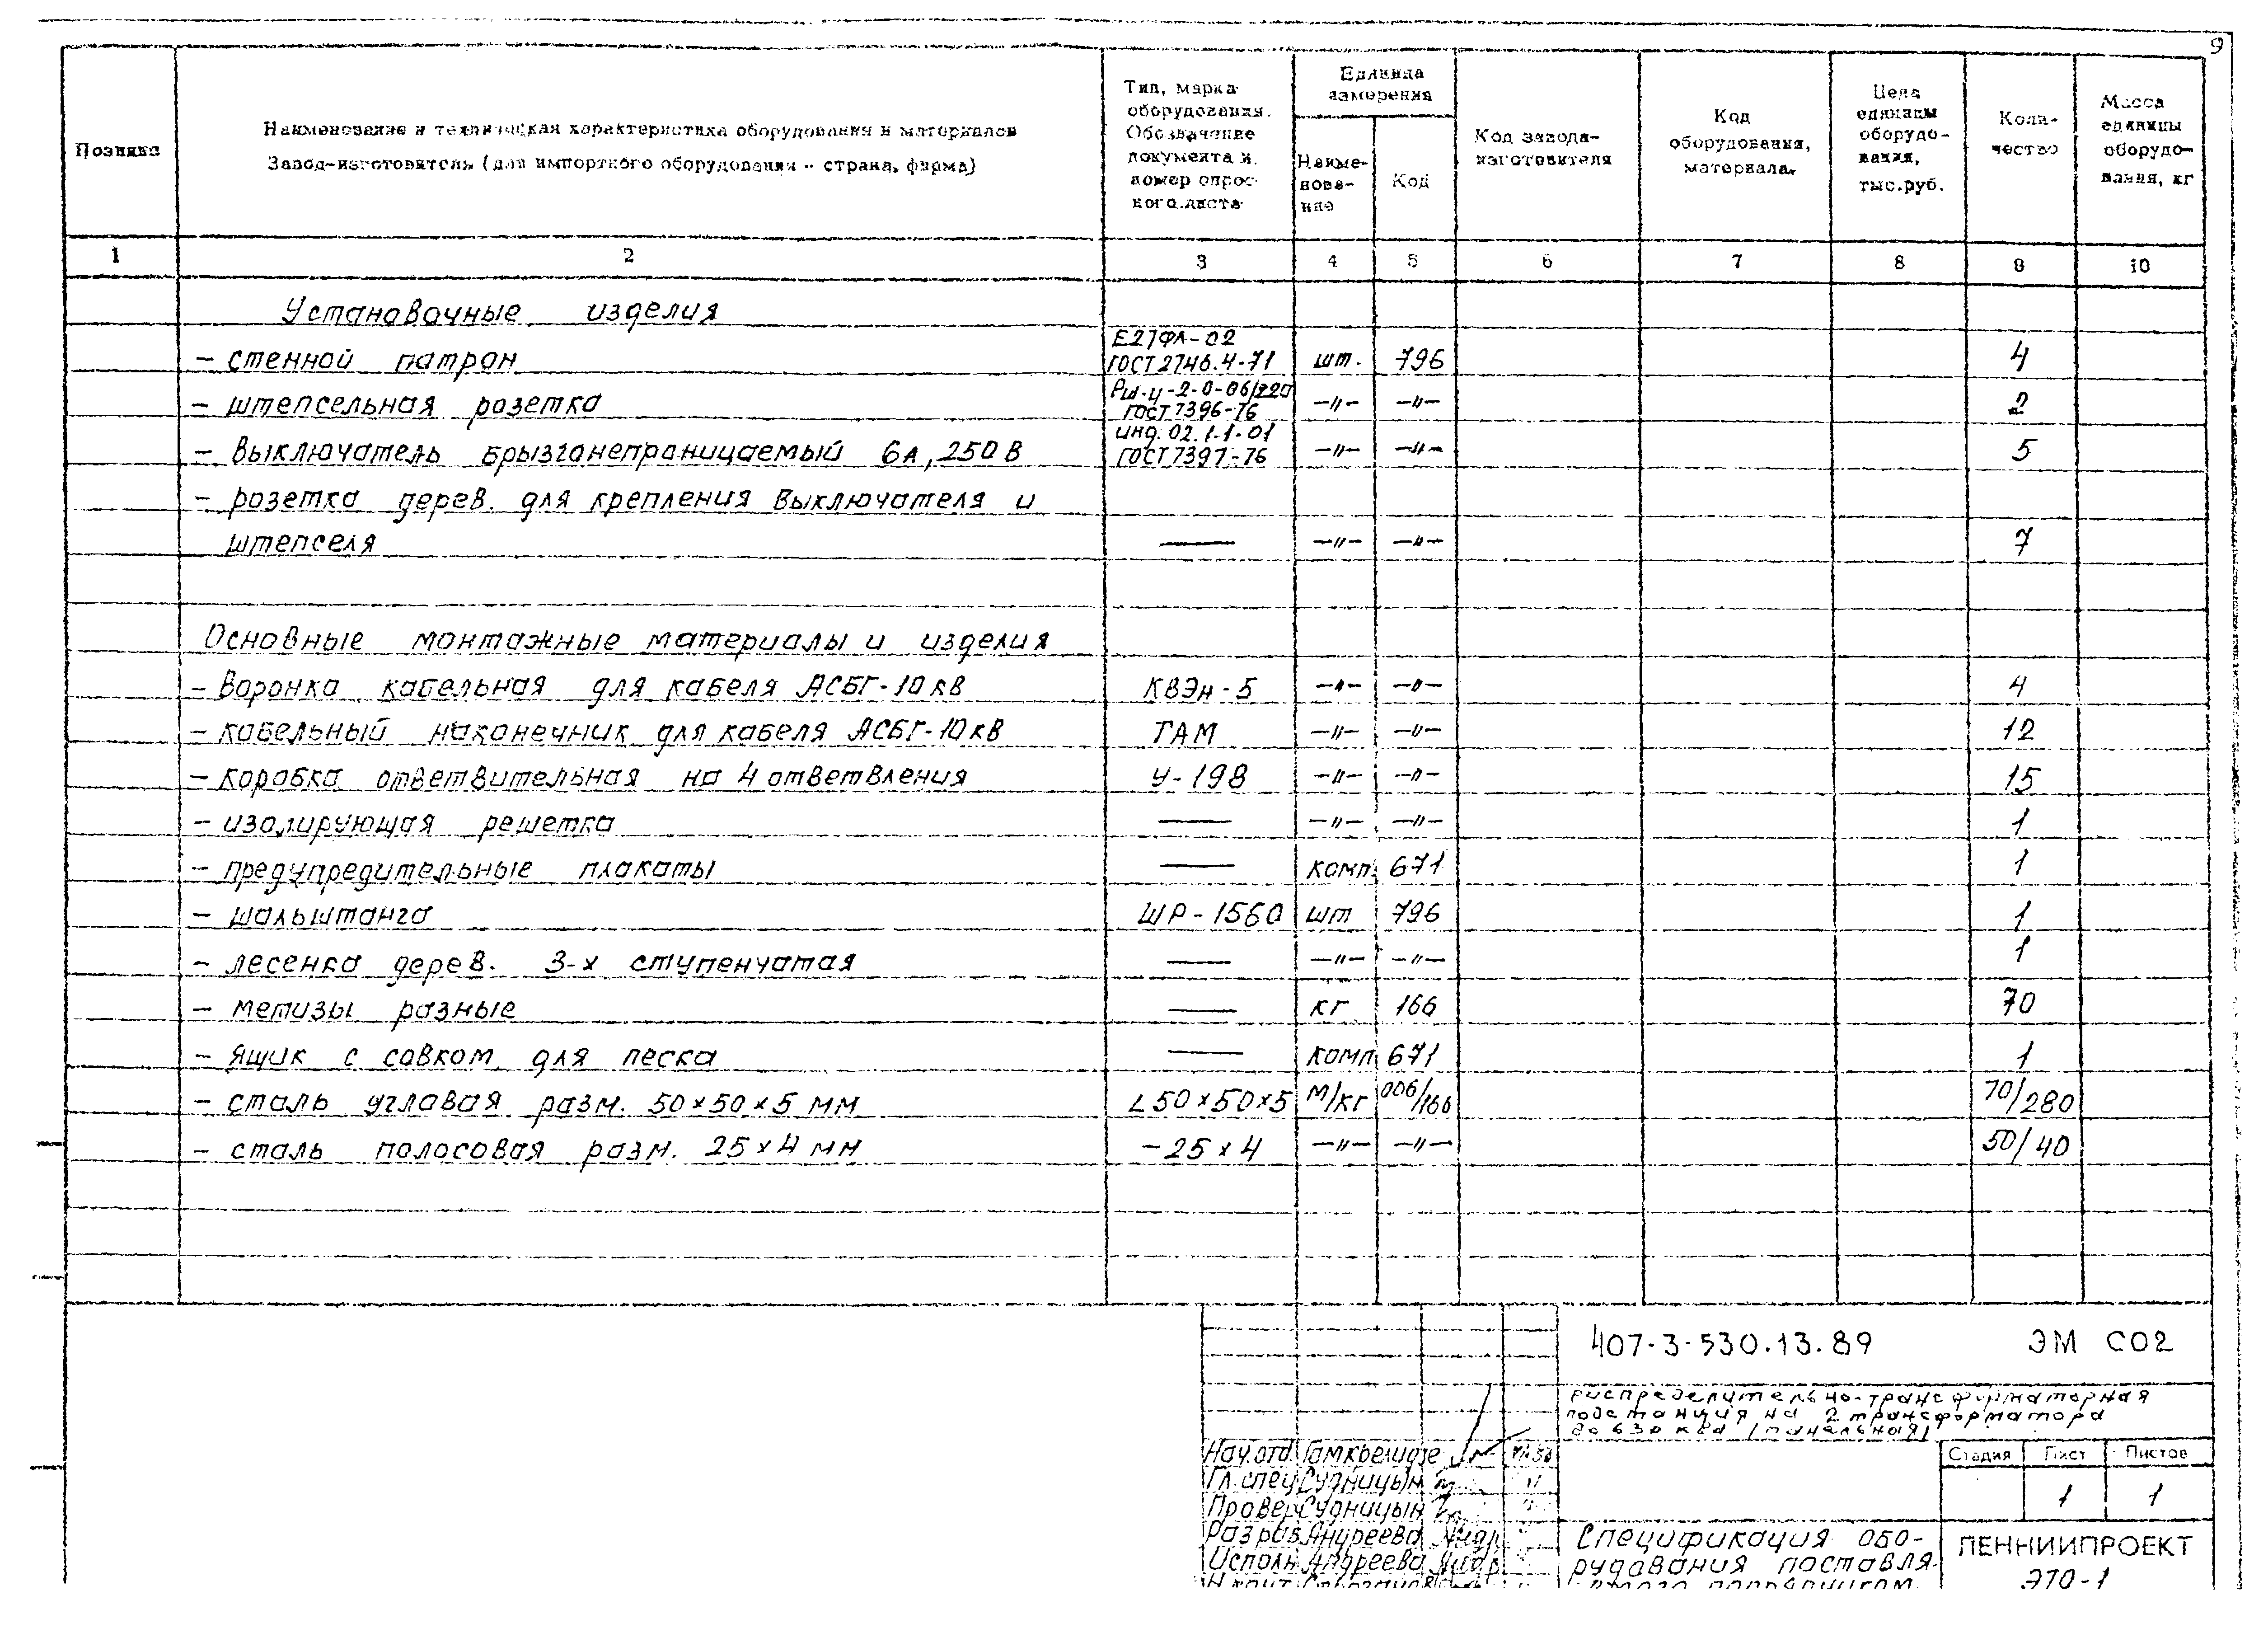 9
Позиция
Наименование и техническая характеристика оборудования и материалов
Завод-изготовитель (для импортного оборудования - страна, фирма)
Тип, марка
оборудования.
Обозначение
документа и
номер опрос-
ного листа
Единица
измерения
Наиме-
нова-
ние
Код
Код завода-
изготовителя
Код
оборудования,
материала
Цена
единицы
оборудо-
вания,
тыс.руб.
Коли-
чество
Масса
единицы
оборудо-
вания, кг
1 2 3 4 5 6 7 8 9 10
Установочные изделия
- стенной патрон Е27ФЛ-02 ГОСТ 2746.4-71 шт. 796 4
- штепсельная розетка РШ-Ц-2-0-06/220 ГОСТ 7396-76 —"— —"— 2
- выключатель брызганепраницаемый 6А, 250В инд. 02.1-1-01 ГОСТ 7397-76 —"— —"— 5
- розетка дерев. для крепления выключателя и
штепселя — —"— —"— 7
Основные монтажные материалы и изделия
- Воронка кабельная для кабеля АСБГ-10кВ КВЭн-5 —"— —"— 4
- кабельный наконечник для кабеля АСБГ-10кВ ТАМ —"— —"— 12
- коробка ответвительная на 4 ответвления У-198 —"— —"— 15
- изолирующая решетка — —"— —"— 1
- предупредительные плакаты — комп. 671 1
- шальштанга ШР-1560 шт 796 1
- лесенка дерев. 3-х ступенчатая — —"— —"— 1
- метизы разные — кг 166 70
- ящик с совком для песка — комп 671 1
- сталь угловая разм. 50×50×5 мм L50×50×5 м/кг 006/166 70/280
- сталь полосовая разм. 25×4 мм -25×4 —"— —"— 50/40
407-3-530.13.89 ЭМ СО2
распределительно-трансформаторная
подстанция на 2 трансформатора
до 630 кВа (панельная)
Нач.отд. Гамкрелидзе
Гл.спец Судницын
Провер Судницын
Разраб. Андреева
Исполн. Андреева
Стадия Лист Листов
1 1
Спецификация обо-
рудования поставля-
ЛЕННИИПРОЕКТ
ЭТО-1